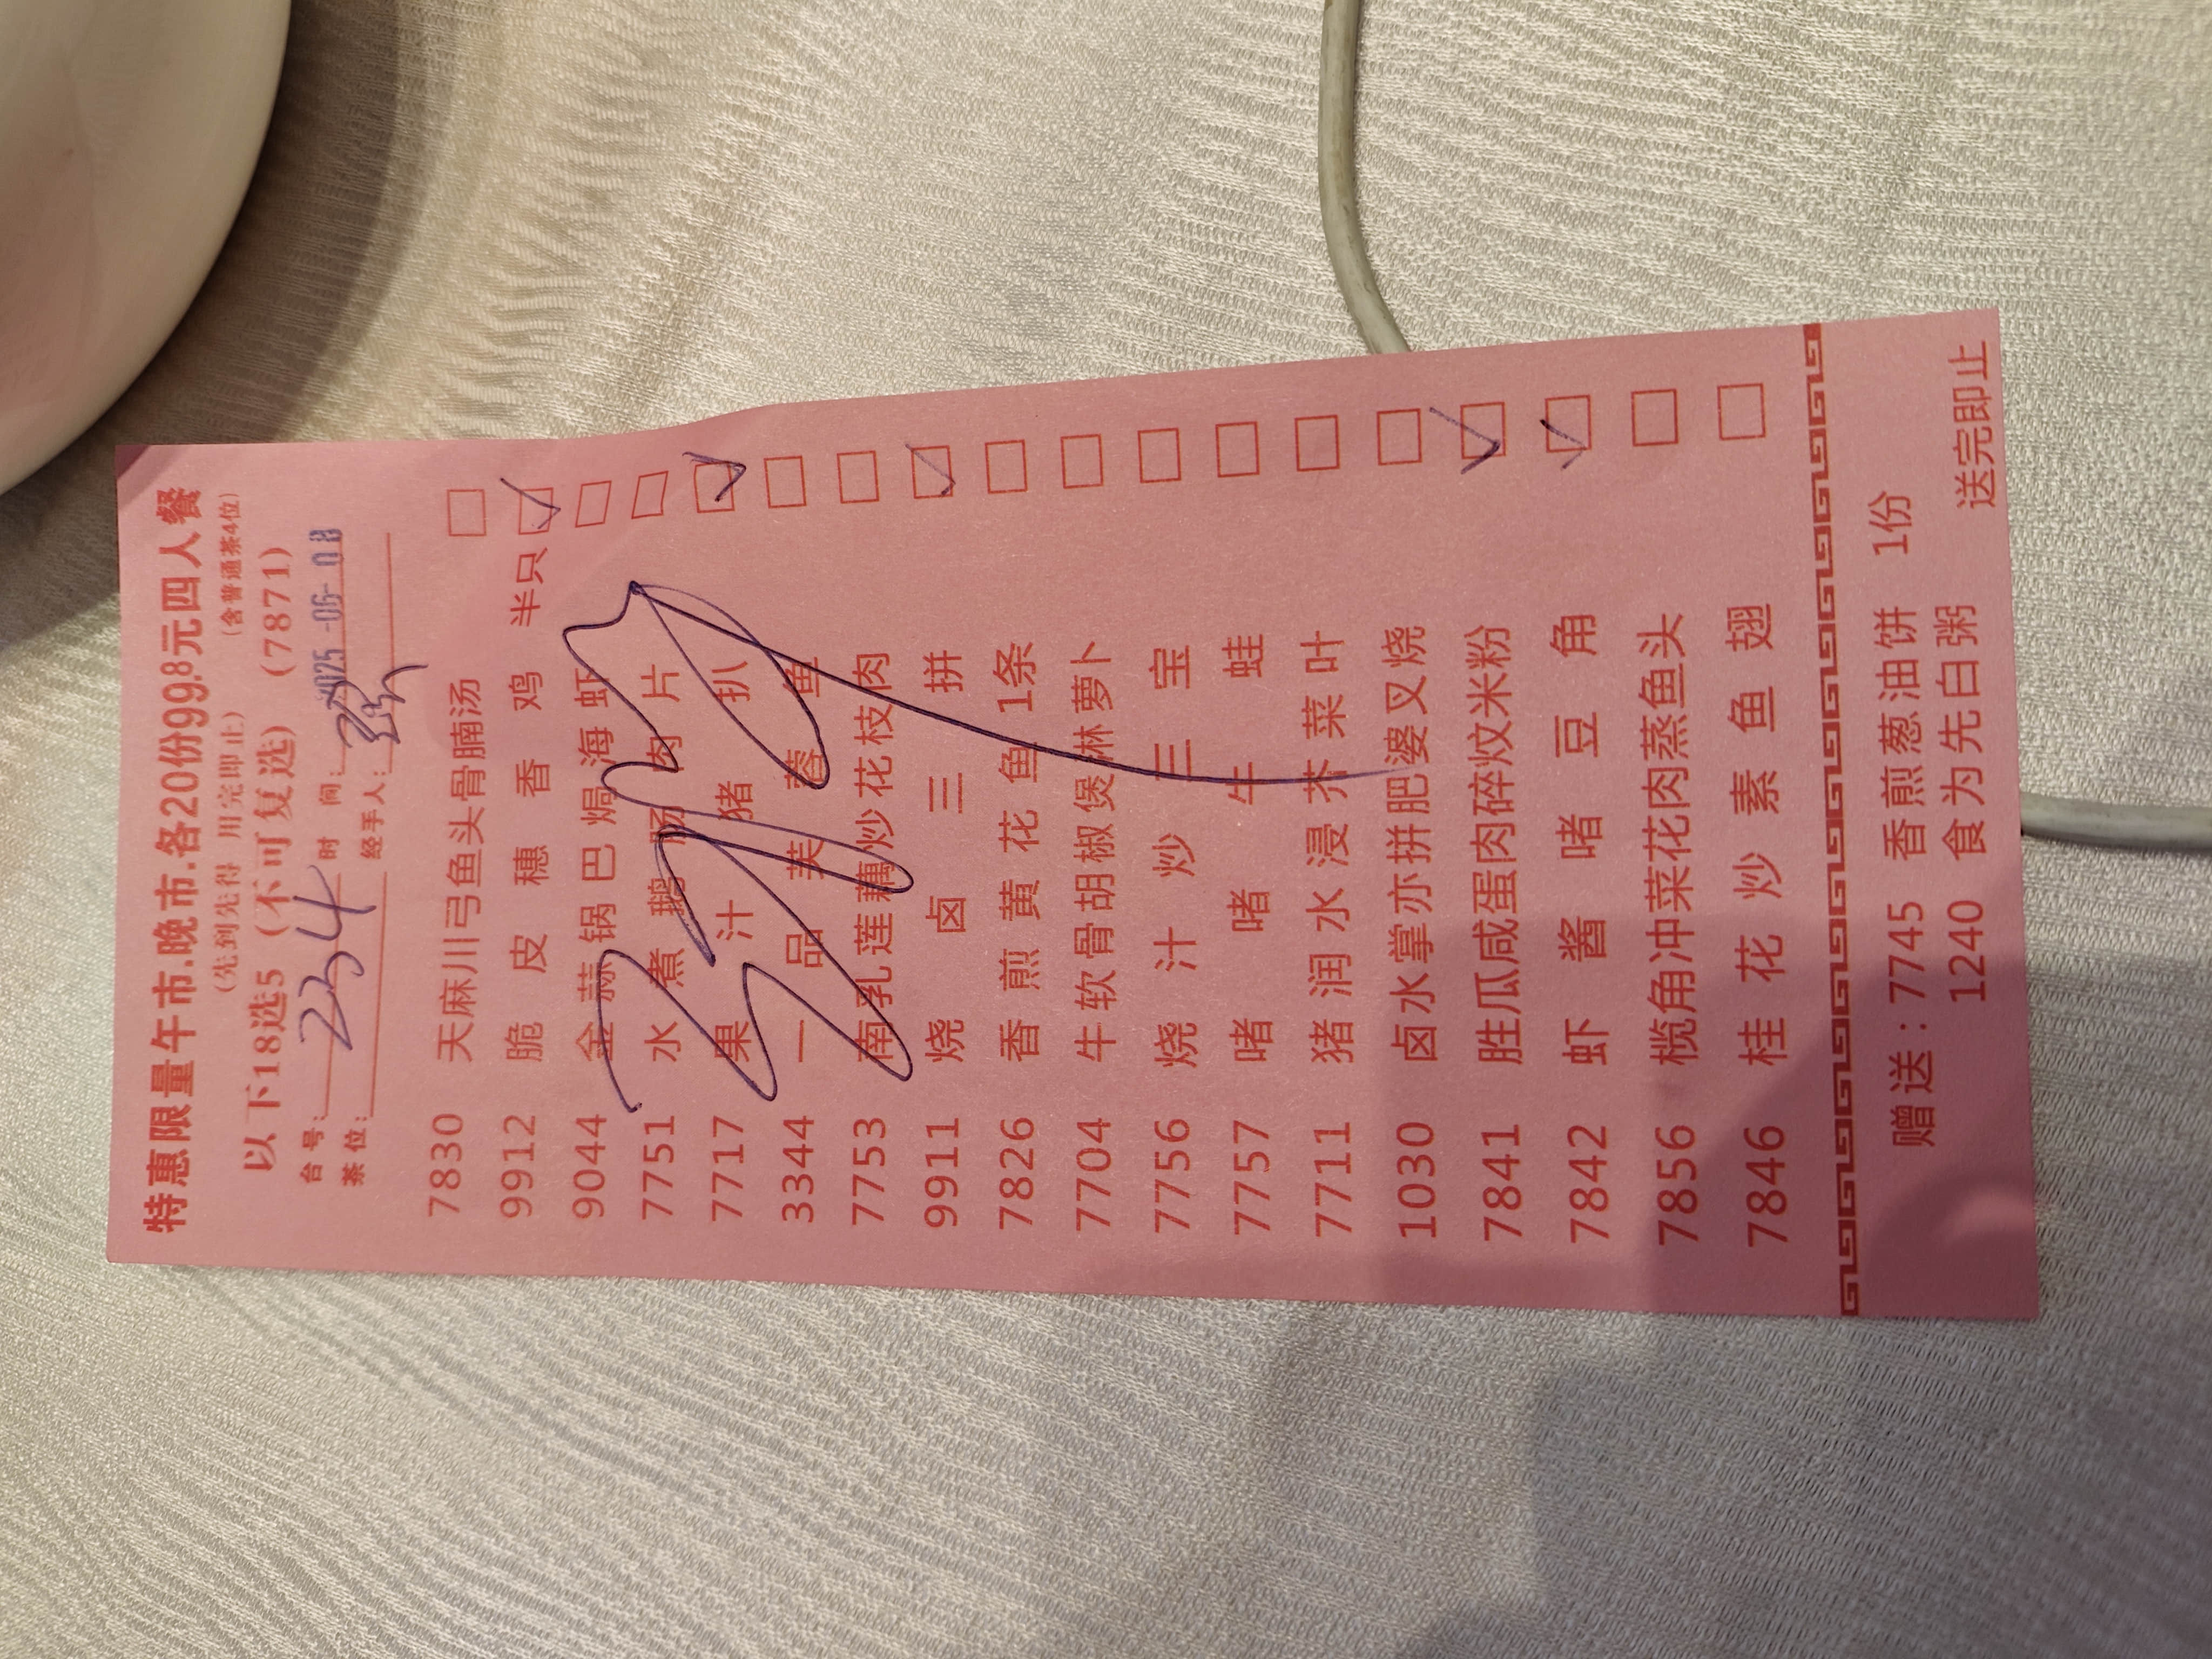 特惠限量午市.晚市.各20份99.8元四人餐
(先到先得 用完即止) (含普通茶4位)
以下18选5 (不可复选) (7871)
台号: 234 时间: 2025-06-08
茶位: 经手人:
7830 天麻川弓鱼头骨腩汤 □
9912 脆皮穗香鸡 半只 ☑
9044 金蒜锅巴焗海虾 □
7751 水煮鹅肠肉片 □
7717 果汁猪扒 ☑
3344 一品芙蓉鱼 □
7753 南乳莲藕炒花枝肉 □
9911 烧卤三拼 ☑
7826 香煎黄花鱼1条 □
7704 牛软骨胡椒煲淋萝卜 □
7756 烧汁炒三宝 □
7757 啫啫牛蛙 □
7711 猪润水浸芥菜叶 □
1030 卤水掌亦拼肥婆叉烧 □
7841 胜瓜咸蛋肉碎炆米粉 ☑
7842 虾酱啫豆角 ☑
7856 榄角冲菜花肉蒸鱼头 □
7846 桂花炒素鱼翅 □
赠送: 7745 香煎葱油饼 1份
1240 食为先白粥
送完即止